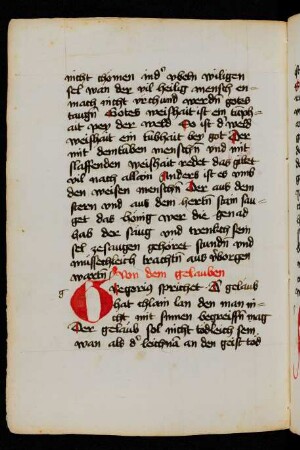 nicht chomen in dˀ vbeln willigen
sel wan der vil heilig mensch en-
mach nicht vrchund werdn̄ gotes
taugn̄ Gotes weishait ist ein tumph-
ait pey der weld So ist dˀ weld
weishait ein tubhait bey got Der
mit den tuben menschn̄ vnd mit
slaffenden weishait redet das gilltet
vil nach allain Anders ist es vmb
den weisen menschn̄ Der aus dem
stern vnd aus dem hertn̄ stain sau-
get das hönig wer die genad
hab der saug vnd trenlich sein
sel zesaugen gehöret stundn̄ vnd
mussechleich trachtn̄ aus vˀborgen
wartn̄ Von dem gelauben
g Gregorius sprichet Der gelaub
hat chlain lan den man ni-
cht mit sinnen begreiffn̄ mag
Der gelaub sol nicht todleich sein
wan als dˀ leichnā an den geist tod